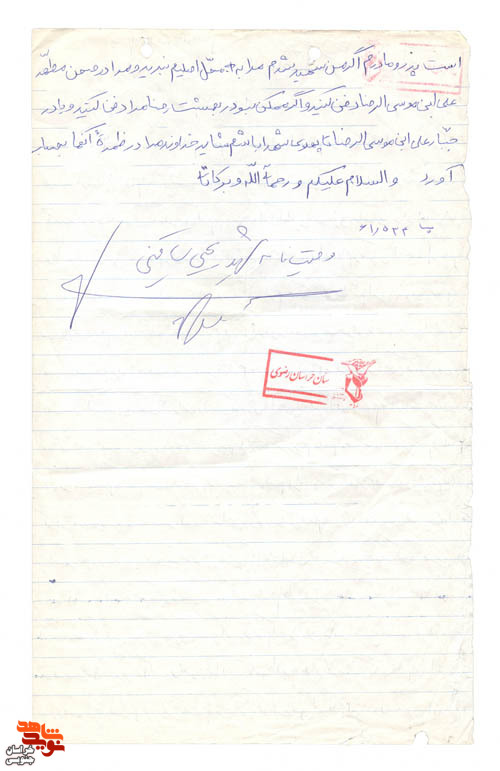 است پدر و مادرم اگر من شهید شدم مرا به محل اصلیم نبرید و مرا در صحن مطهر
علی ابن موسی الرضا دفن کنید و اگر ممکن نبود در بهشت رضا مرا دفن کنید و یا در
جبار علی ابن موسی الرضا تا پهلوی شهدا باشم شاید خداوند مرا در ظمرهٔ آنها بحساب
آورد والسلام علیکم و رحمة الله و برکاتة
۶۱/۵/۲۲
وصیت نامه شهید یحیی
سان خراسان رضوی
نوید شاهد
خراسان
جنوبی